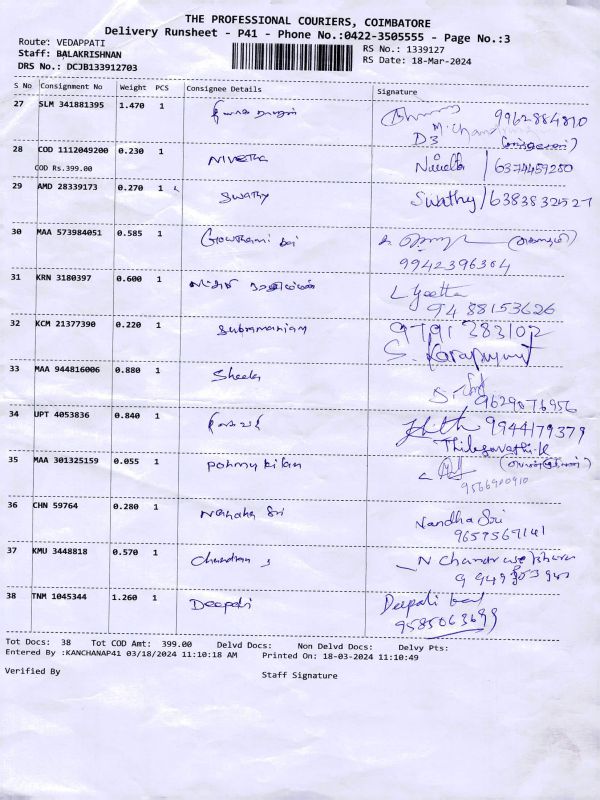 THE PROFESSIONAL COURIERS, COIMBATORE
Delivery Runsheet - P41 - Phone No.:0422-3505555 - Page No.:3
Route: VEDAPPATI
RS No.: 1339127
Staff: BALAKRISHNAN
RS Date: 18-Mar-2024
DRS No.: DCJB133912703
S No Consignment No Weight PCS Consignee Details Signature
27 SLM 341881395 1.470 1 9962884810
D3
28 COD 1112049200 0.230 1 Nivetha 6374459250
COD Rs.399.00
29 AMD 28339173 0.270 1 Swathy Swathy / 6383832527
30 MAA 573984051 0.585 1 Gowthami
9942396304
31 KRN 3180397 0.600 1 L Geetha
9488153626
32 KCM 21377390 0.220 1 Subramanian 9791283102
33 MAA 944816006 0.880 1 Sheela
9629076956
34 UPT 4053836 0.840 1 9944179379
35 MAA 301325159 0.055 1
36 CHN 59764 0.280 1 Nandha Sri Nandha Sri
9657567141
37 KMU 3448818 0.570 1 N
38 TNM 1045344 1.260 1 Deepali Deepali
9585063699
Tot Docs: 38 Tot COD Amt: 399.00 Delvd Docs: Non Delvd Docs: Delvy Pts:
Entered By :KANCHANAP41 03/18/2024 11:10:18 AM Printed On: 18-03-2024 11:10:49
Verified By Staff Signature